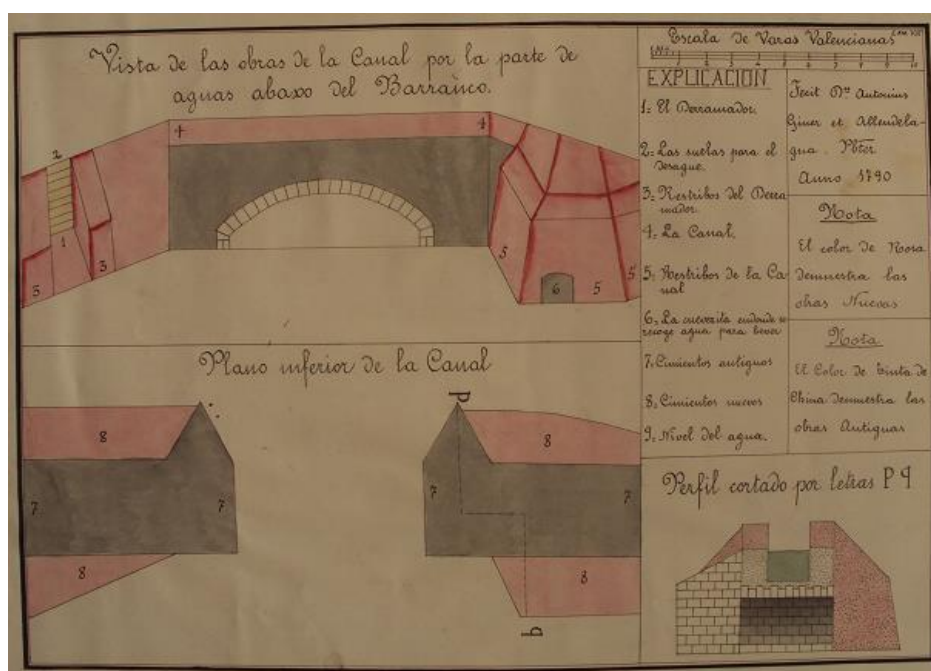 Vista de las obras de la Canal por la parte de
aguas abaxo del Barranco.
4 4
2
1
3
3
5
6
5
5
Plano inferior de la Canal
8
7
7
8
P
8
7
7
8
q
Escala de Varas Valencianas
EXPLICACION
1= El Derramador.
2= Las suelas para el
desague.
3= Restribos del Derra
mador.
4= La Canal.
5= Restribos de la Ca
nal
6= La cuevezita endonde se
recoge agua para bever
7= Cimientos antiguos
8= Cimientos nuevos
9= Nivel del agua.
Fecit Dn Antonius
Giner et Allendela-
gua. Pbter
Anno 1790
Nota
El color de Rosa
demuestra las
obras Nuevas
Nota
El Color de tinta de
China demuestra las
obras Antiguas
Perfil cortado por letras P q